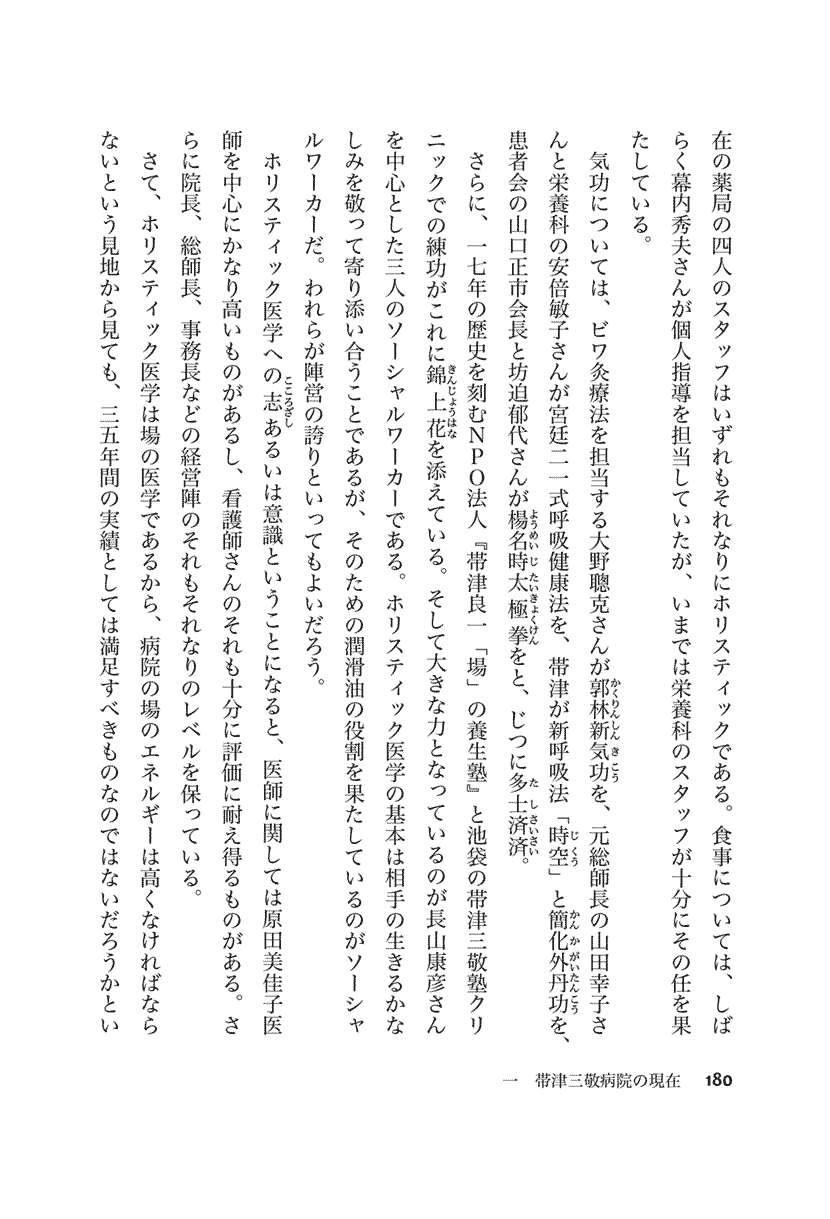 在の薬局の四人のスタッフはいずれもそれなりにホリスティックである。食事については、しば
らく幕内秀夫さんが個人指導を担当していたが、いまでは栄養科のスタッフが十分にその任を果
たしている。
気功については、ビワ灸療法を担当する大野聰克さんが郭林新気功を、元総師長の山田幸子さ
んと栄養科の安倍敏子さんが宮廷二一式呼吸健康法を、帯津が新呼吸法「時空」と簡化外丹功を、
患者会の山口正市会長と坊迫郁代さんが楊名時太極拳をと、じつに多士済済。
さらに、一七年の歴史を刻むNPO法人『帯津良一「場」の養生塾』と池袋の帯津三敬塾クリ
ニックでの練功がこれに錦上花を添えている。そして大きな力となっているのが長山康彦さん
を中心とした三人のソーシャルワーカーである。ホリスティック医学の基本は相手の生きるかな
しみを敬って寄り添い合うことであるが、そのための潤滑油の役割を果たしているのがソーシャ
ルワーカーだ。われらが陣営の誇りといってもよいだろう。
ホリスティック医学への志あるいは意識ということになると、医師に関しては原田美佳子医
師を中心にかなり高いものがあるし、看護師さんのそれも十分に評価に耐え得るものがある。さ
らに院長、総師長、事務長などの経営陣のそれもそれなりのレベルを保っている。
さて、ホリスティック医学は場の医学であるから、病院の場のエネルギーは高くなければなら
ないという見地から見ても、三五年間の実績としては満足すべきものなのではないだろうかとい
一 帯津三敬病院の現在 180